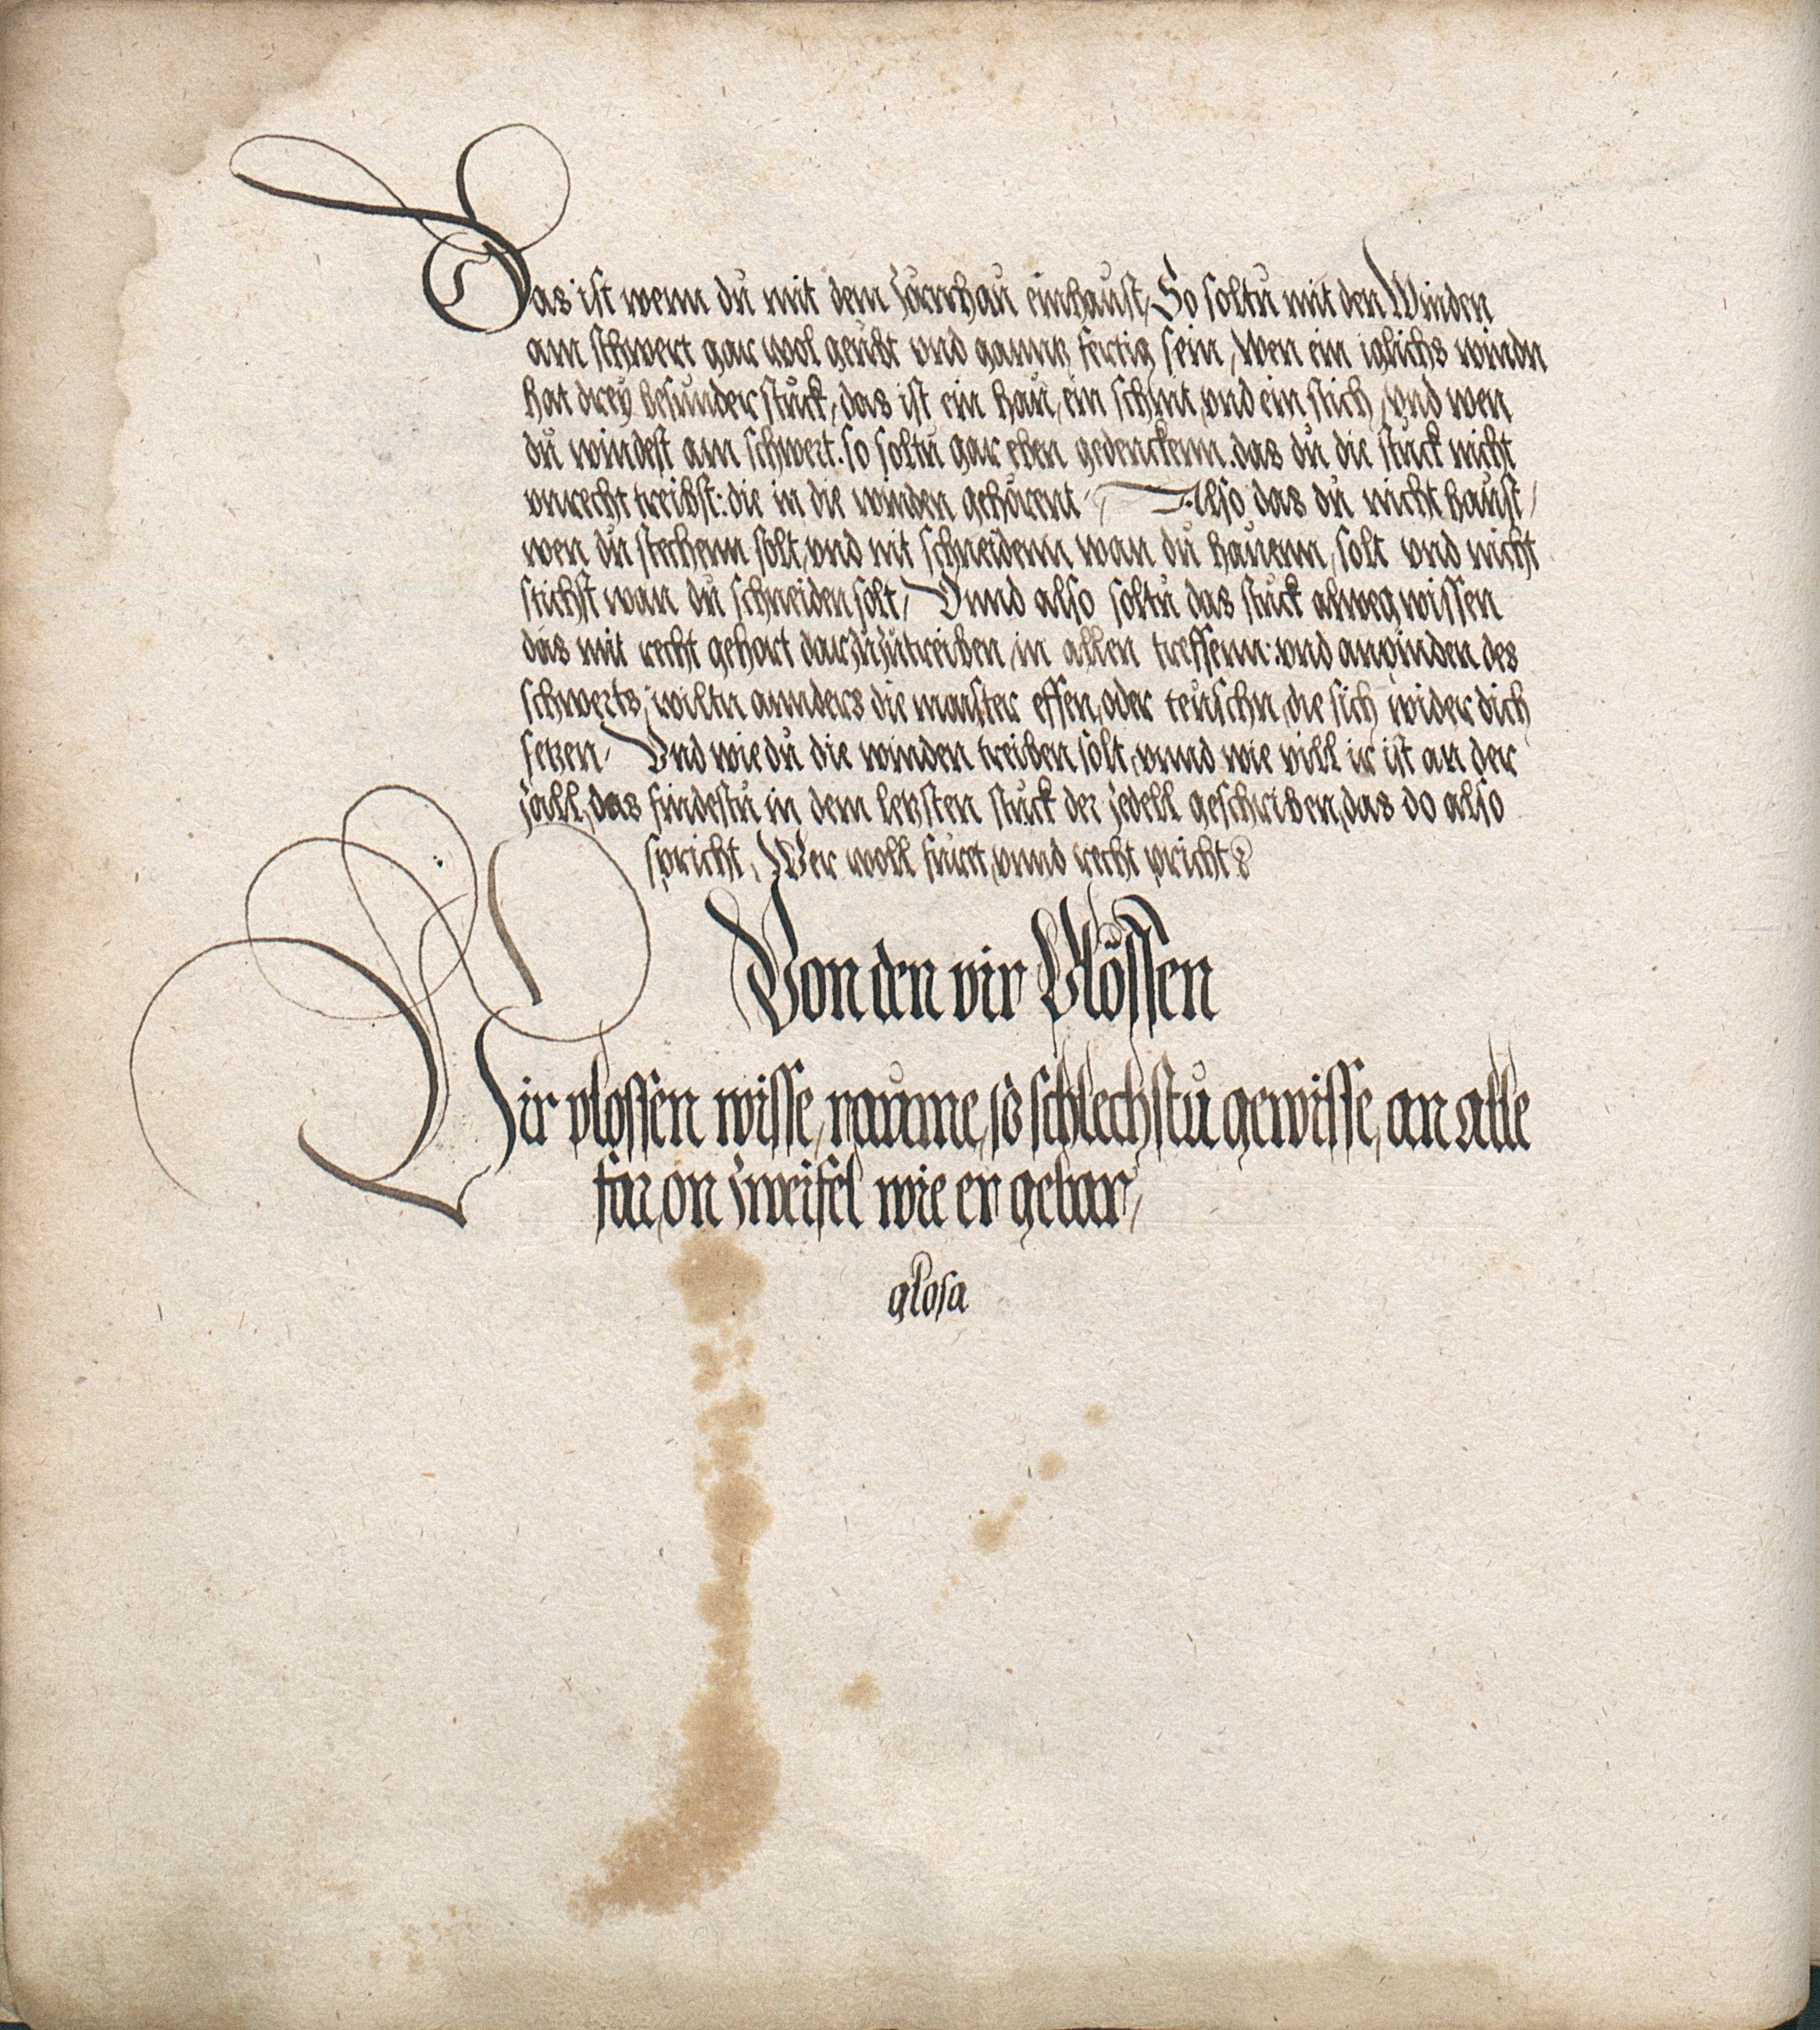 Das ist wenn du mit dem zornhau einhaust, So soltu mit den Winden
am schwert gar wol geubt vnd gannts fertig sein, Wen ein iglichs windn
hat drey besunder stuck, das ist ein hau, ein schnit, vnd ein stich, vnd wen
du windest am schwert. so soltu gar eben gedenckenn. das du die stuck nicht
vnrecht treibst: die in die winden gehörent, Also das du nicht haust,
wen du stechenn solt, vnd nit schneidenn wan du hauenn, solt vnd nicht
stichst wan du schneiden solt, Vnnd also soltu das stuck alweg wissen
das mit recht gehort darzuzutreiben, in allen treffenn: vnd anwinden des
schwerts, wiltu annders die maister effen, oder teuschn, die sich wider dich
setzen, Vnd wie du die winden treiben solt, vnnd wie vill ir ist an der
zall, das findestu in dem letzsten stuck der zedell geschriben, das do also
spricht, Wer woll furet, vnnd recht pricht
Von den vir Plössen
Vir plossen wisse, raume, so schlechstu gewisse, an alle
far, on zweifel wie er gebar,
glosa